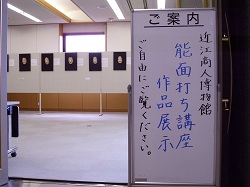 ご案内
近江商人博物館
能面打ち講座
作品展示
ご自由にご覧ください。